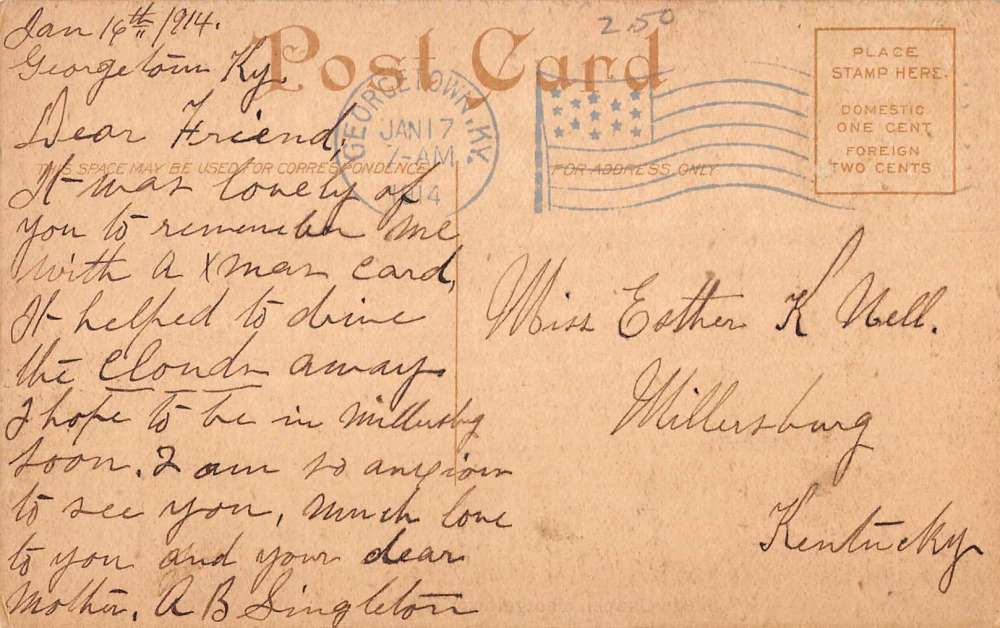 Jan 16th 1914.
Georgetown Ky.
Post Card
2.50
PLACE
STAMP HERE.
DOMESTIC
ONE CENT
FOREIGN
TWO CENTS
GEORGETOWN, KY.
JAN 17
7-AM
1914
THIS SPACE MAY BE USED FOR CORRESPONDENCE
FOR ADDRESS ONLY
Dear Friend,
It was lovely of
you to remember me
with a Xmas card,
It helped to drive
the clouds away.
I hope to be in Millersbg
soon. I am so anxious
to see you, much love
to you and your dear
Mother. A B Singleton
Miss Esther K Nell.
Millersburg
Kentucky